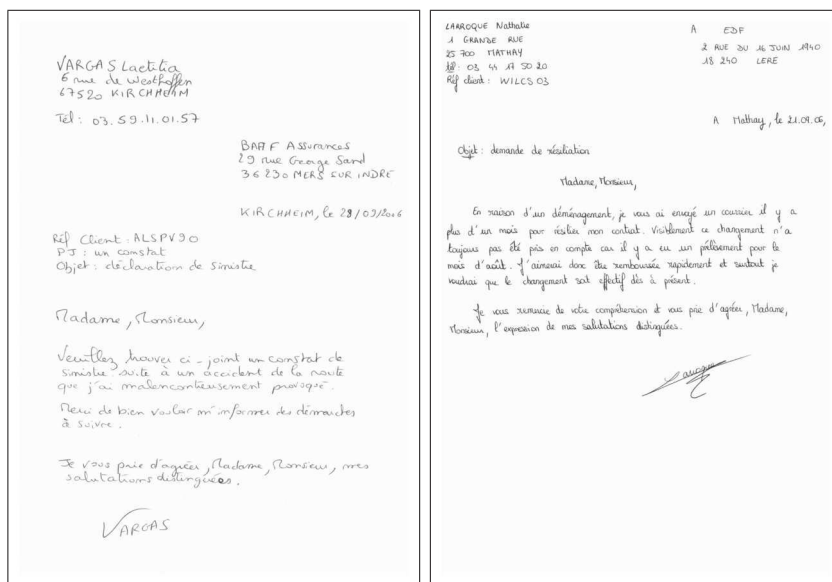 VARGAS Laetitia
6 rue de Westhoffen
67520 KIRCHHEIM
Tél : 03.59.11.01.57
BAAF Assurances
29 rue George Sand
36230 MERS SUR INDRE
KIRCHHEIM, le 29/09/2006
Réf Client : ALSPV90
PJ : un constat
Objet : déclaration de sinistre
Madame, Monsieur,
Veuillez trouver ci-joint un constat de
sinistre suite à un accident de la route
que j'ai malencontreusement provoqué.
Merci de bien vouloir m'informer des démarches
à suivre.
Je vous prie d'agréer, Madame, Monsieur, mes
salutations distinguées.
VARGAS
LARROQUE Nathalie
1 GRANDE RUE
25 700 MATHAY
tél : 03 44 17 50 20
Réf client : WILCS 03
A EDF
2 RUE DU 16 JUIN 1940
18 240 LERE
A Mathay, le 21.09.06,
Objet : demande de résiliation
Madame, Monsieur,
En raison d'un déménagement, je vous ai envoyé un courrier il y a
plus d'un mois pour résilier mon contrat. Visiblement ce changement n'a
toujours pas été pris en compte car il y a eu un prélèvement pour le
mois d'août. J'aimerai donc être remboursée rapidement et surtout je
voudrai que le changement soit effectif dès à présent.
Je vous remercie de votre compréhension et vous prie d'agréer, Madame,
Monsieur, l'expression de mes salutations distinguées.